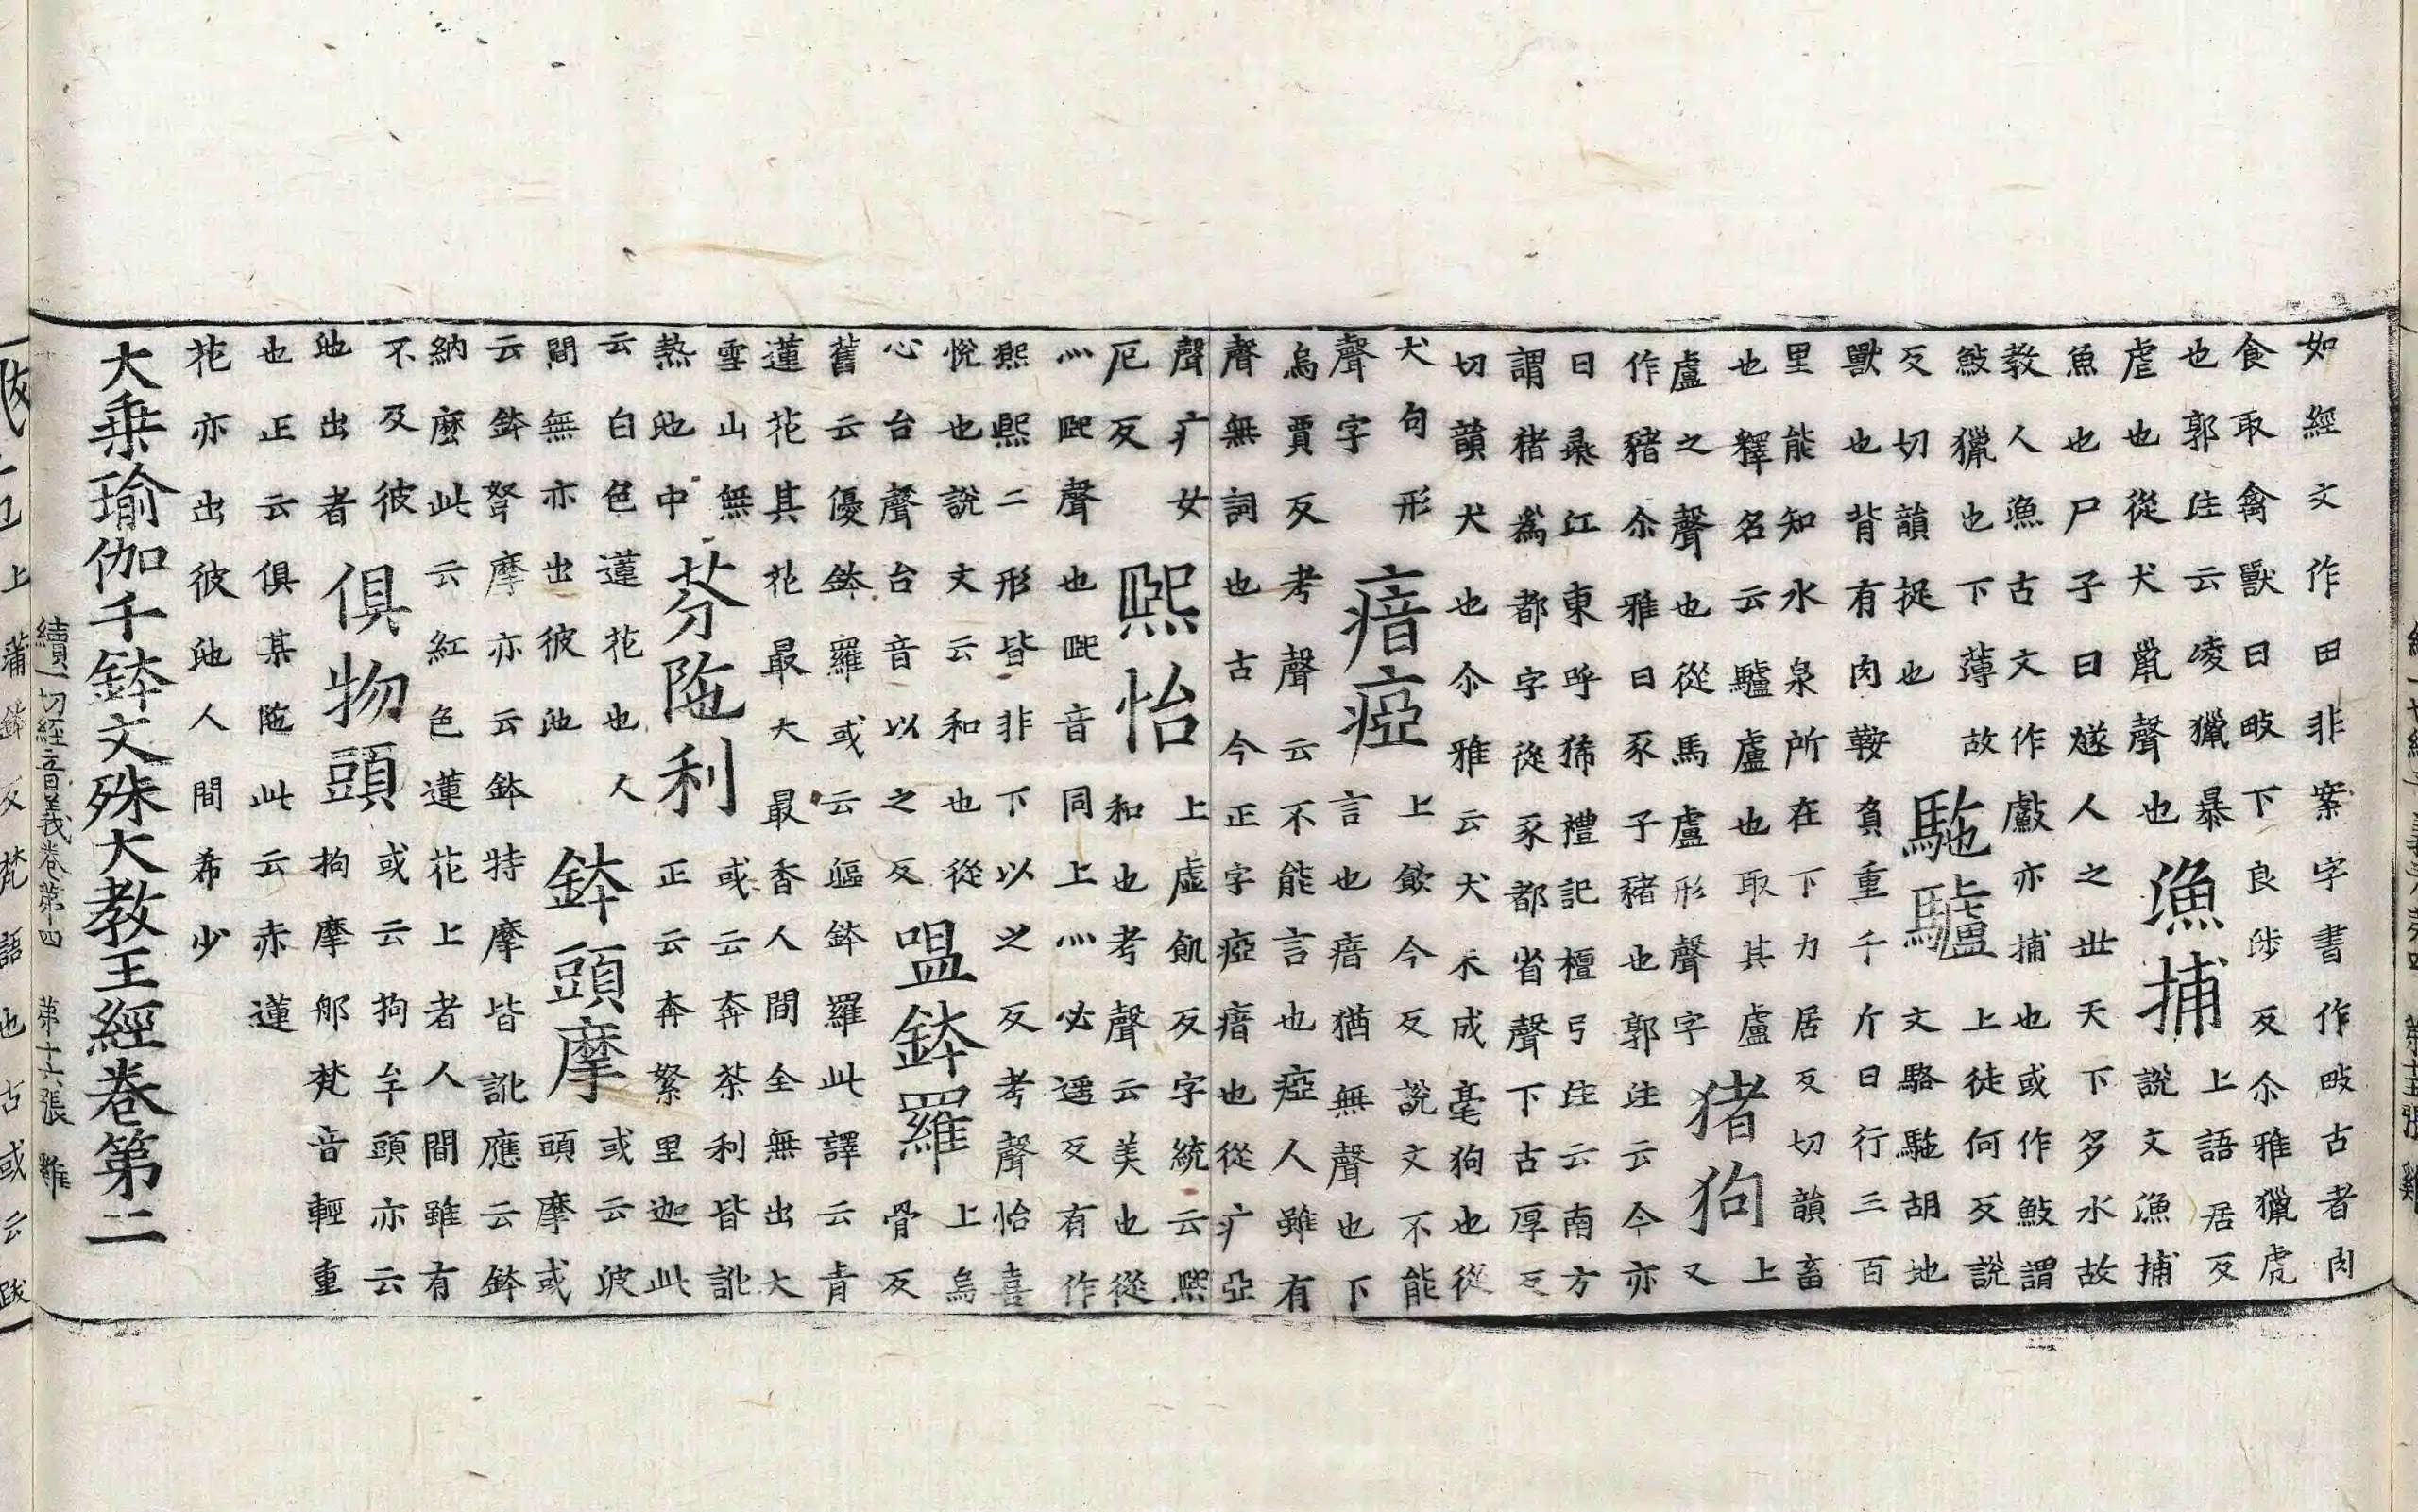 如經文作田非案字書作畋古者肉
食取禽獸曰畋下良涉反尒雅獵虎
也郭注云凌獵暴
虐也從犬鼡聲也
漁捕
上語居反
說文漁捕
魚也尸子曰燧人之世天下多水故
教人漁古文作䱷亦捕也或作䰻謂
䰻獵也下薄故
反切韻捉也
駞驢
上徒何反說
文駱駞胡地
獸也背有肉鞍負重千斤日行三百
里能知水泉所在下力居反切韻畜
也釋名云驢盧也取其盧
盧之聲也從馬盧形聲字
猪狗
上
又
作豬尒雅曰豕子豬也郭注云今亦
曰彘江東呼狶禮記檀弓注云南方
謂猪為都字從豕都省聲下古厚反
切韻犬也尒雅云犬未成毫狗也從
犬句形
聲字
瘖瘂
上飲今反說文不能
言也瘖猶無聲也下
烏賈反考聲云不能言也瘂人雖有
聲無詞也古今正字瘂瘖也從疒亞
聲疒女
厄反
熈怡
上虛飢反字統云熈
和也考聲云美也從
灬巸聲也巸音同上灬必遥反有作
熙熙二形皆非下以之反考聲怡喜
悅也說文云和也從
心台聲台音以之反
嗢鉢羅
上烏
骨反
舊云優鉢羅或云漚鉢羅此譯云青
蓮花其花最大最香人間全無出大
雪山無
熱池中
芬陁利
或云奔荼利皆訛
正云奔絮里迦此
云白色蓮花也人
間無亦出彼池
鉢頭摩
或云波
頭摩或
云鉢弩摩亦云鉢特摩皆訛應云鉢
納麼此云紅色蓮花上者人間雖有
不及彼
池出者
俱物頭
或云拘牟頭亦云
拘摩郍梵音輕重
也正云俱某陁此云赤蓮
花亦出彼池人間希少
大乗瑜伽千鉢文殊大教王經卷第二
續一切經音義卷第四 第十六張 雞
上蒲鉢反梵語也古或云跋